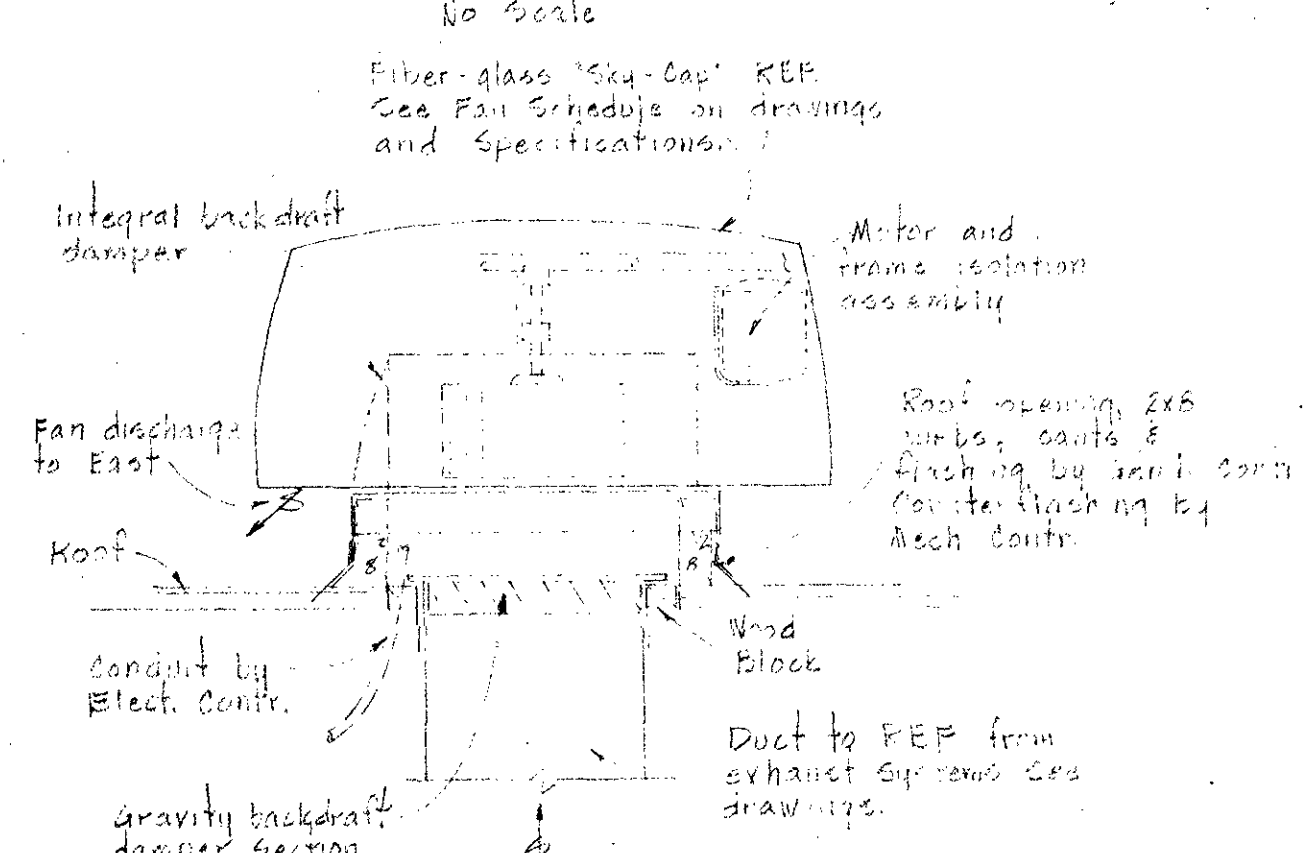 No Scale
Fiber-glass "Sky-Cap" REF.
See Fan Schedule on drawings
and Specifications.
Integral backdraft
damper
Motor and
frame isolation
assembly
Fan discharge
to East
Roof opening, 2x8
curbs, cants &
flashing by Contr
Counterflashing by
Mech Contr.
Roof
2
8
2
8
Wood
Block
Conduit by
Elect. Contr.
Duct to REF from
exhaust Systems See
drawings.
Gravity backdraft
damper Section